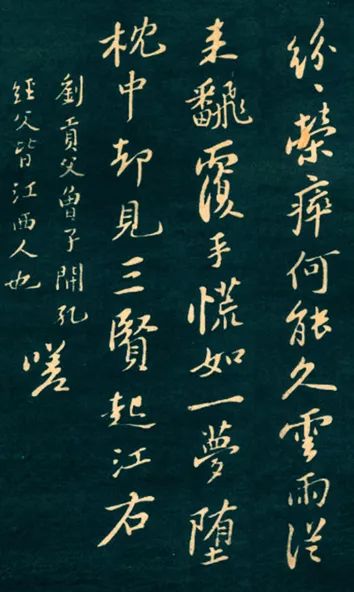 紛〻榮瘁何能久雲雨從
来飜覆手慌如一夢墮
枕中却見三賢起江右
劉貢父曾子開孔
經父皆江西人也
嗟